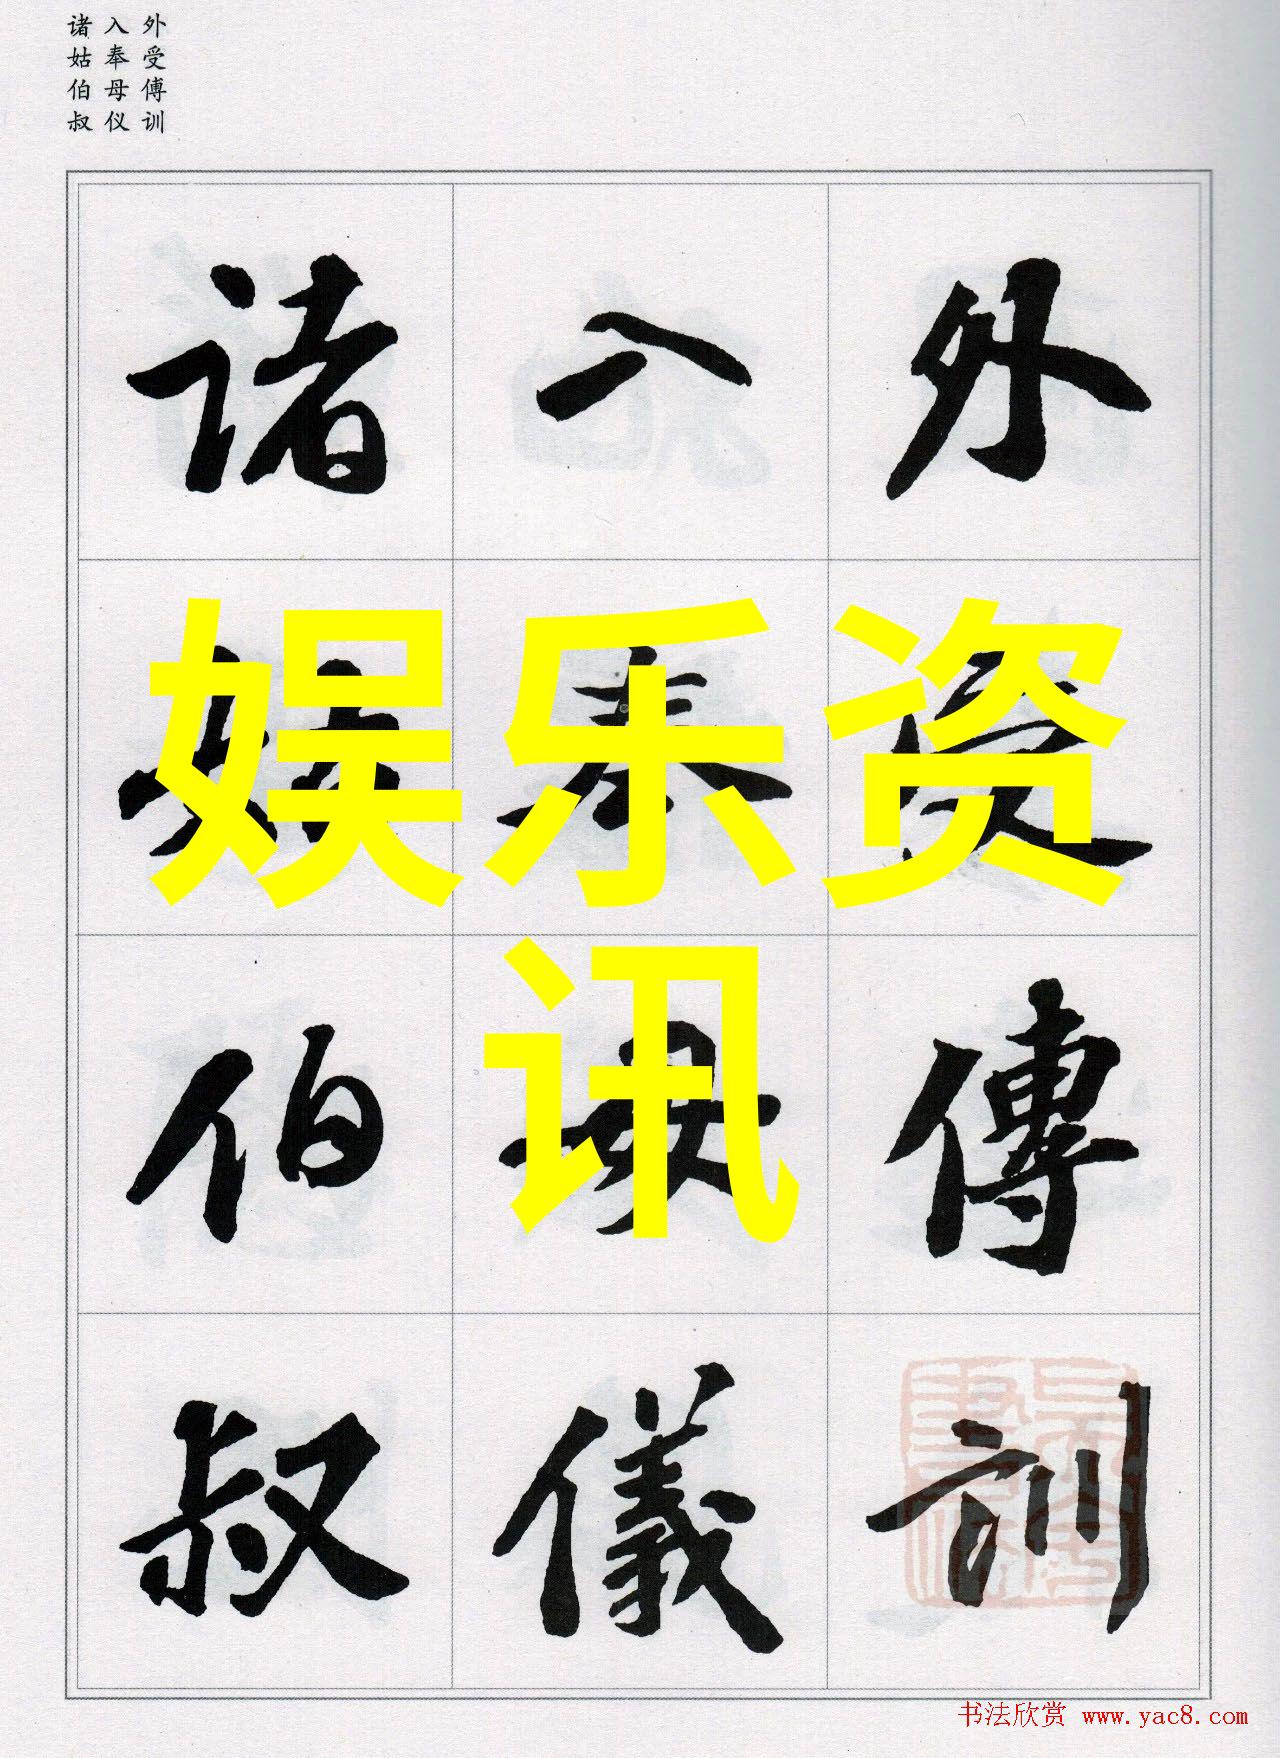 外受傅训
入奉母仪
诸姑伯叔
外受傅訓
入奉母儀
诸姑伯叔
娱乐资
讯
书法欣赏 www.yac8.com